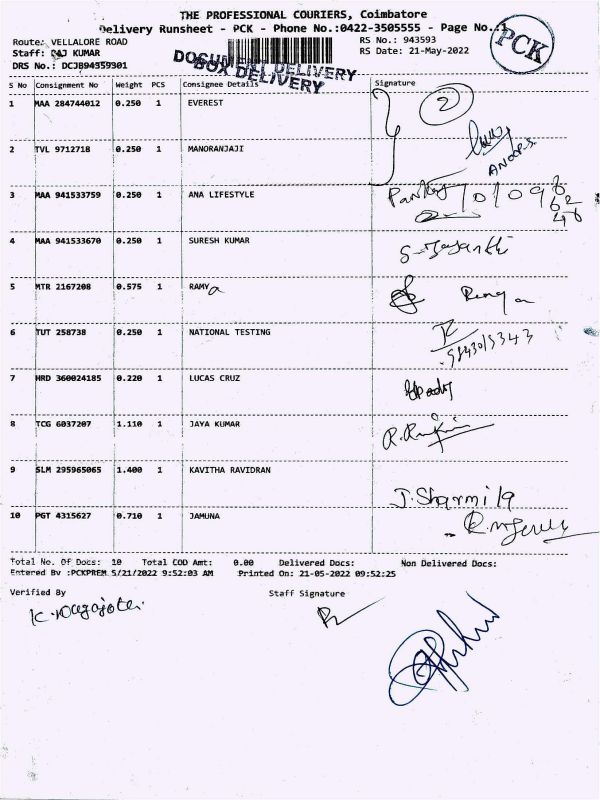 THE PROFESSIONAL COURIERS, Coimbatore
Delivery Runsheet - PCK - Phone No.:0422-3505555 - Page No.:
PCK
Route: VELLALORE ROAD
RS No.: 943593
Staff: RAJ KUMAR
RS Date: 21-May-2022
DRS No.: DCJB94359301
DOCUMENT DELIVERY
BOX DELIVERY
S No Consignment No Weight PCS Consignee Details Signature
1 MAA 284744012 0.250 1 EVEREST 2
2 TVL 9712718 0.250 1 MANORANJAJI
ANOOP.S
3 MAA 941533759 0.250 1 ANA LIFESTYLE
4 MAA 941533670 0.250 1 SURESH KUMAR
5 MTR 2167208 0.575 1 RAMYa
6 TUT 258738 0.250 1 NATIONAL TESTING
7 HRD 360024185 0.220 1 LUCAS CRUZ
8 TCG 6037207 1.110 1 JAYA KUMAR
9 SLM 295965065 1.400 1 KAVITHA RAVIDRAN
J. Sharmila
10 PGT 4315627 0.710 1 JAMUNA
Total No. Of Docs: 10 Total COD Amt: 0.00 Delivered Docs: Non Delivered Docs:
Entered By :PCKPREM 5/21/2022 9:52:03 AM Printed On: 21-05-2022 09:52:25
Verified By Staff Signature